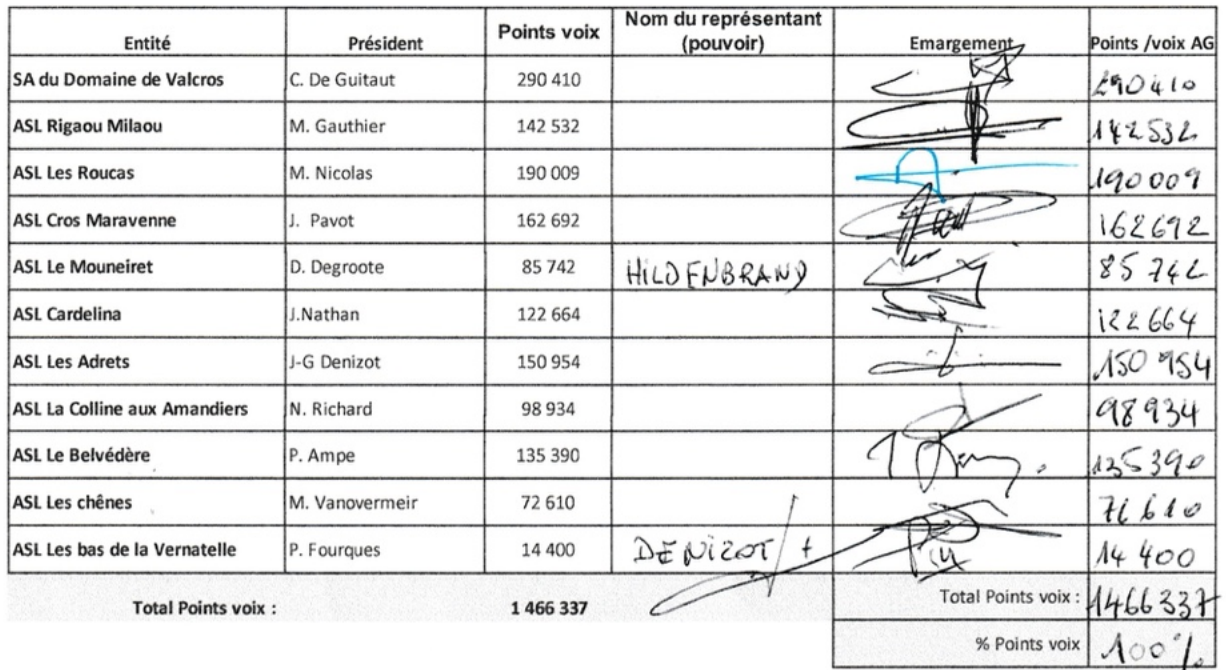 Entité Président Points voix Nom du représentant (pouvoir) Emargement Points /voix AG
SA du Domaine de Valcros C. De Guitaut 290 410 290 410
ASL Rigaou Milaou M. Gauthier 142 532 142 532
ASL Les Roucas M. Nicolas 190 009 190 009
ASL Cros Maravenne J. Pavot 162 692 162 692
ASL Le Mouneiret D. Degroote 85 742 HILDENBRAND 85 742
ASL Cardelina J.Nathan 122 664 122 664
ASL Les Adrets J-G Denizot 150 954 150 954
ASL La Colline aux Amandiers N. Richard 98 934 98 934
ASL Le Belvédère P. Ampe 135 390 135 390
ASL Les chênes M. Vanovermeir 72 610 72 610
ASL Les bas de la Vernatelle P. Fourques 14 400 DENIZOT + 14 400
Total Points voix : 1 466 337 Total Points voix : 1466 337
% Points voix 100%